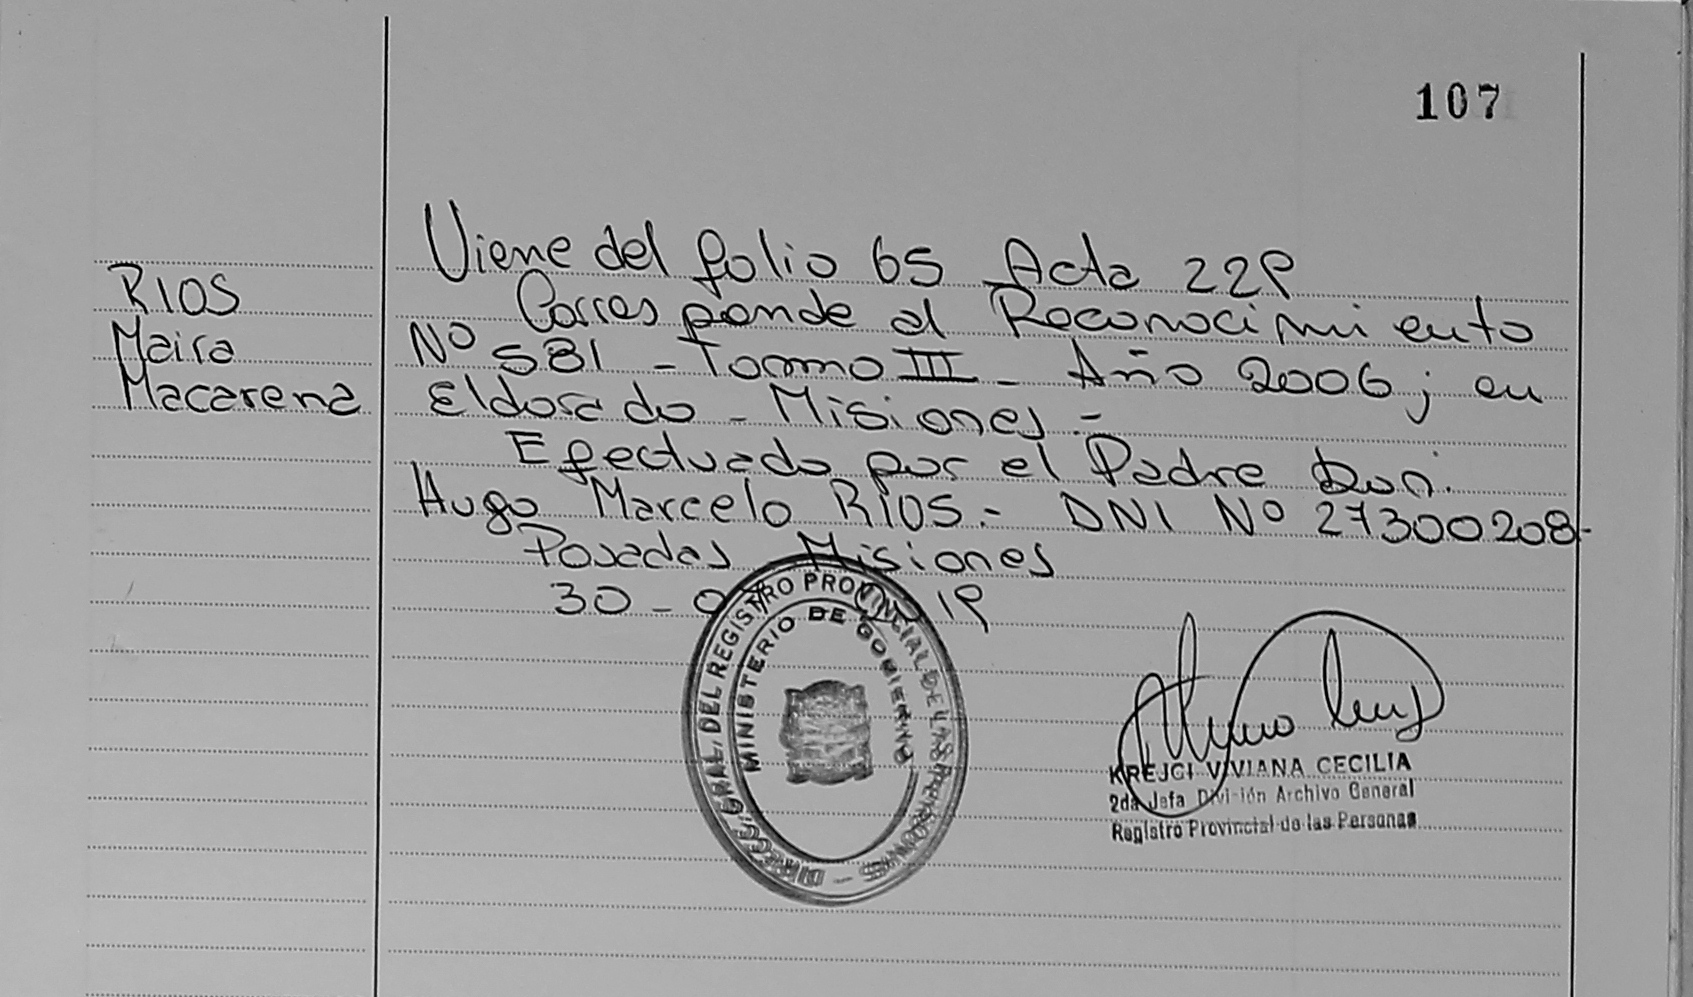 107
Viene del folio 65 Acta 229
RIOS
Corresponde al Reconocimiento
Maira
Nº 581 - Tomo III - Año 2006; en
Macarena
Eldorado - Misiones -
Efectuado por el Padre Don:
Hugo Marcelo RIOS.- DNI Nº 27300208-
Posadas Misiones
30 - 19
DIRECC. GRAL. DEL REGISTRO PROVINCIAL DE LAS PERSONAS -
MINISTERIO DE GOBIERNO
KREJCI VIVIANA CECILIA
2da Jefa División Archivo General
Registro Provincial de las Personas